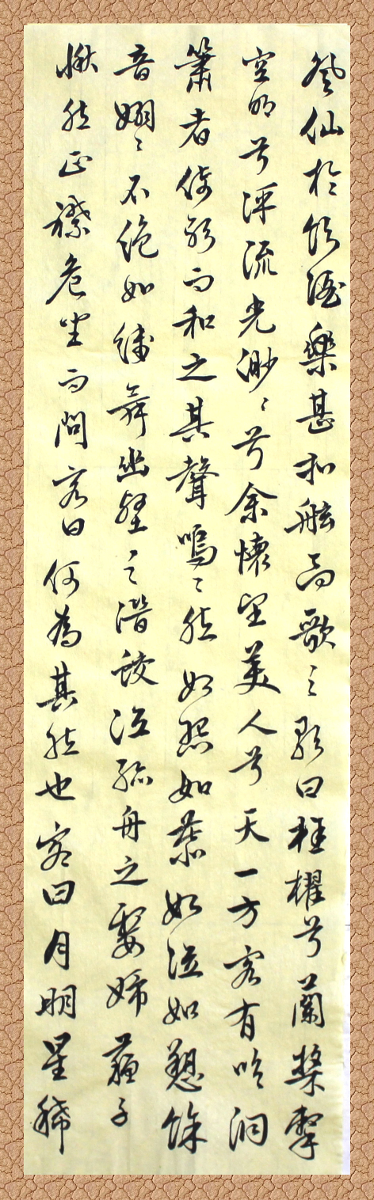 登仙於飲酒樂甚扣舷而歌之歌曰桂櫂兮蘭槳擊
空明兮泝流光渺〻兮余懷望美人兮天一方客有吹洞
簫者倚歌而和之其聲嗚〻然如怨如慕如泣如愬餘
音嫋〻不絕如縷舞幽壑之潛蛟泣孤舟之嫠婦蘇子
愀然正襟危坐而問客曰何為其然也客曰月明星稀